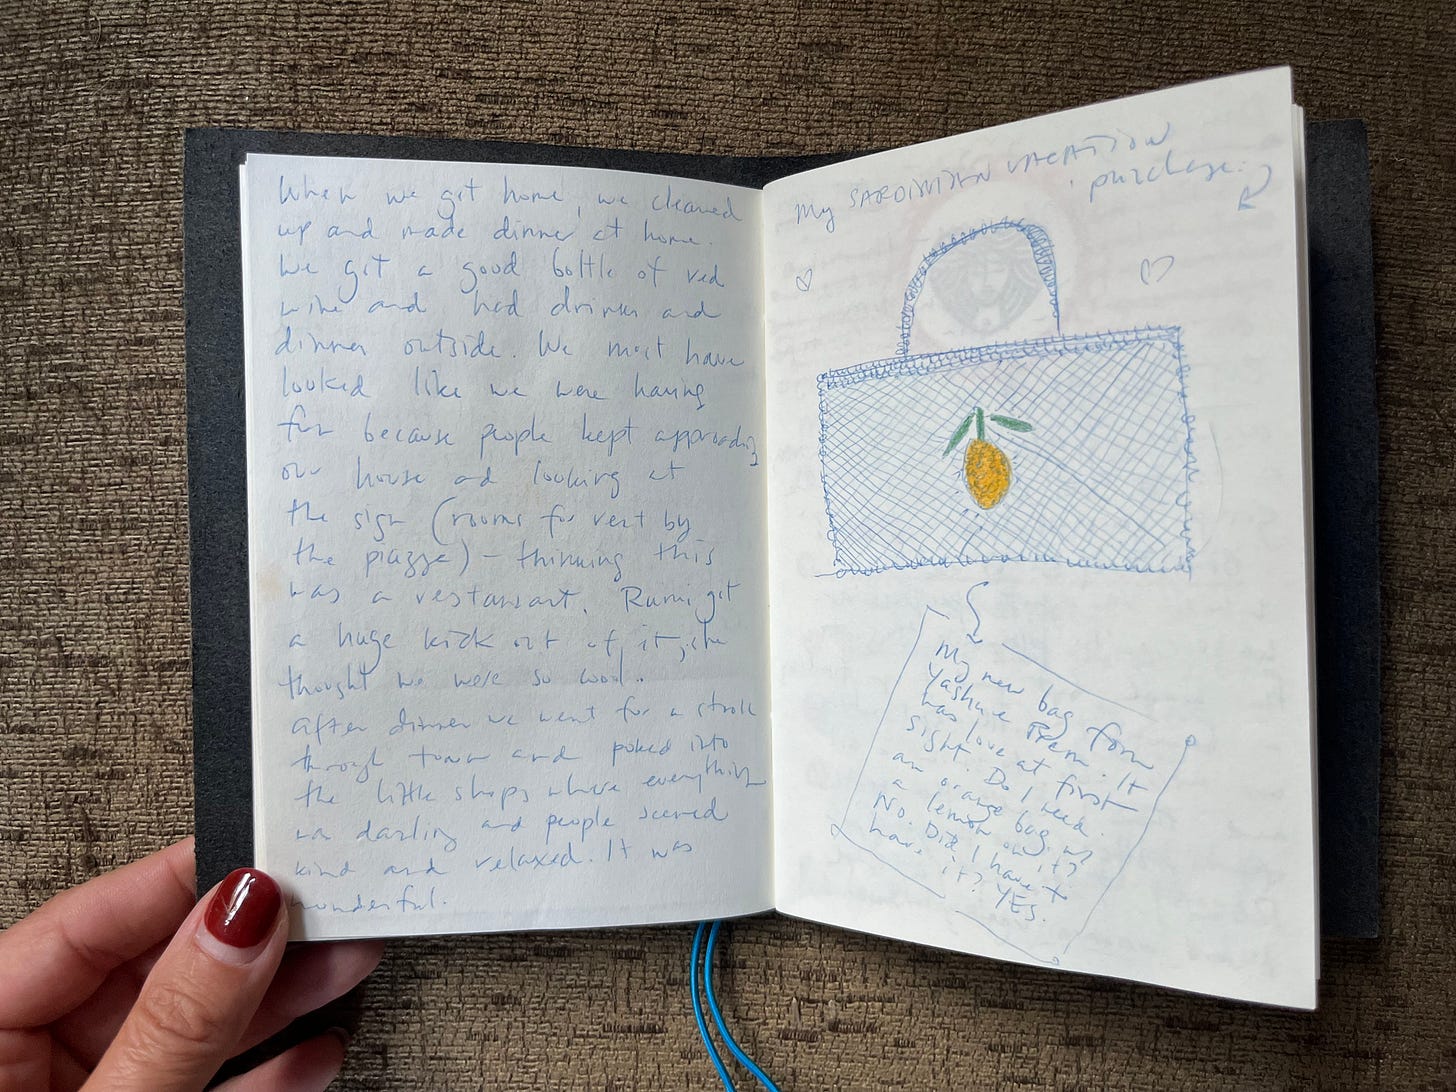 When we got home, we cleaned
up and made dinner at home.
We got a good bottle of red
wine and had drinks and
dinner outside. We must have
looked like we were having
fun because people kept approaching
our house and looking at
the sign (rooms for rent by
the piazza) – thinking this
was a restaurant. Rumi got
a huge kick out of it, she
thought we were so cool.
After dinner we went for a stroll
through town and poked into
the little shops where everything
was darling and people seemed
kind and relaxed. It was
wonderful.
My SARDINIAN VACATION
purchase:
My new bag from
It
was love at first
sight. Do I need
an orange bag w
a lemon on it?
No. Did I have to
have it? YES.